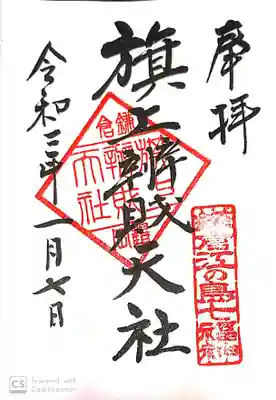 奉拝
旗上辨財天社
令和三年一月七日
鎌倉
江の島七福神
CS Scanned with
CamScanner